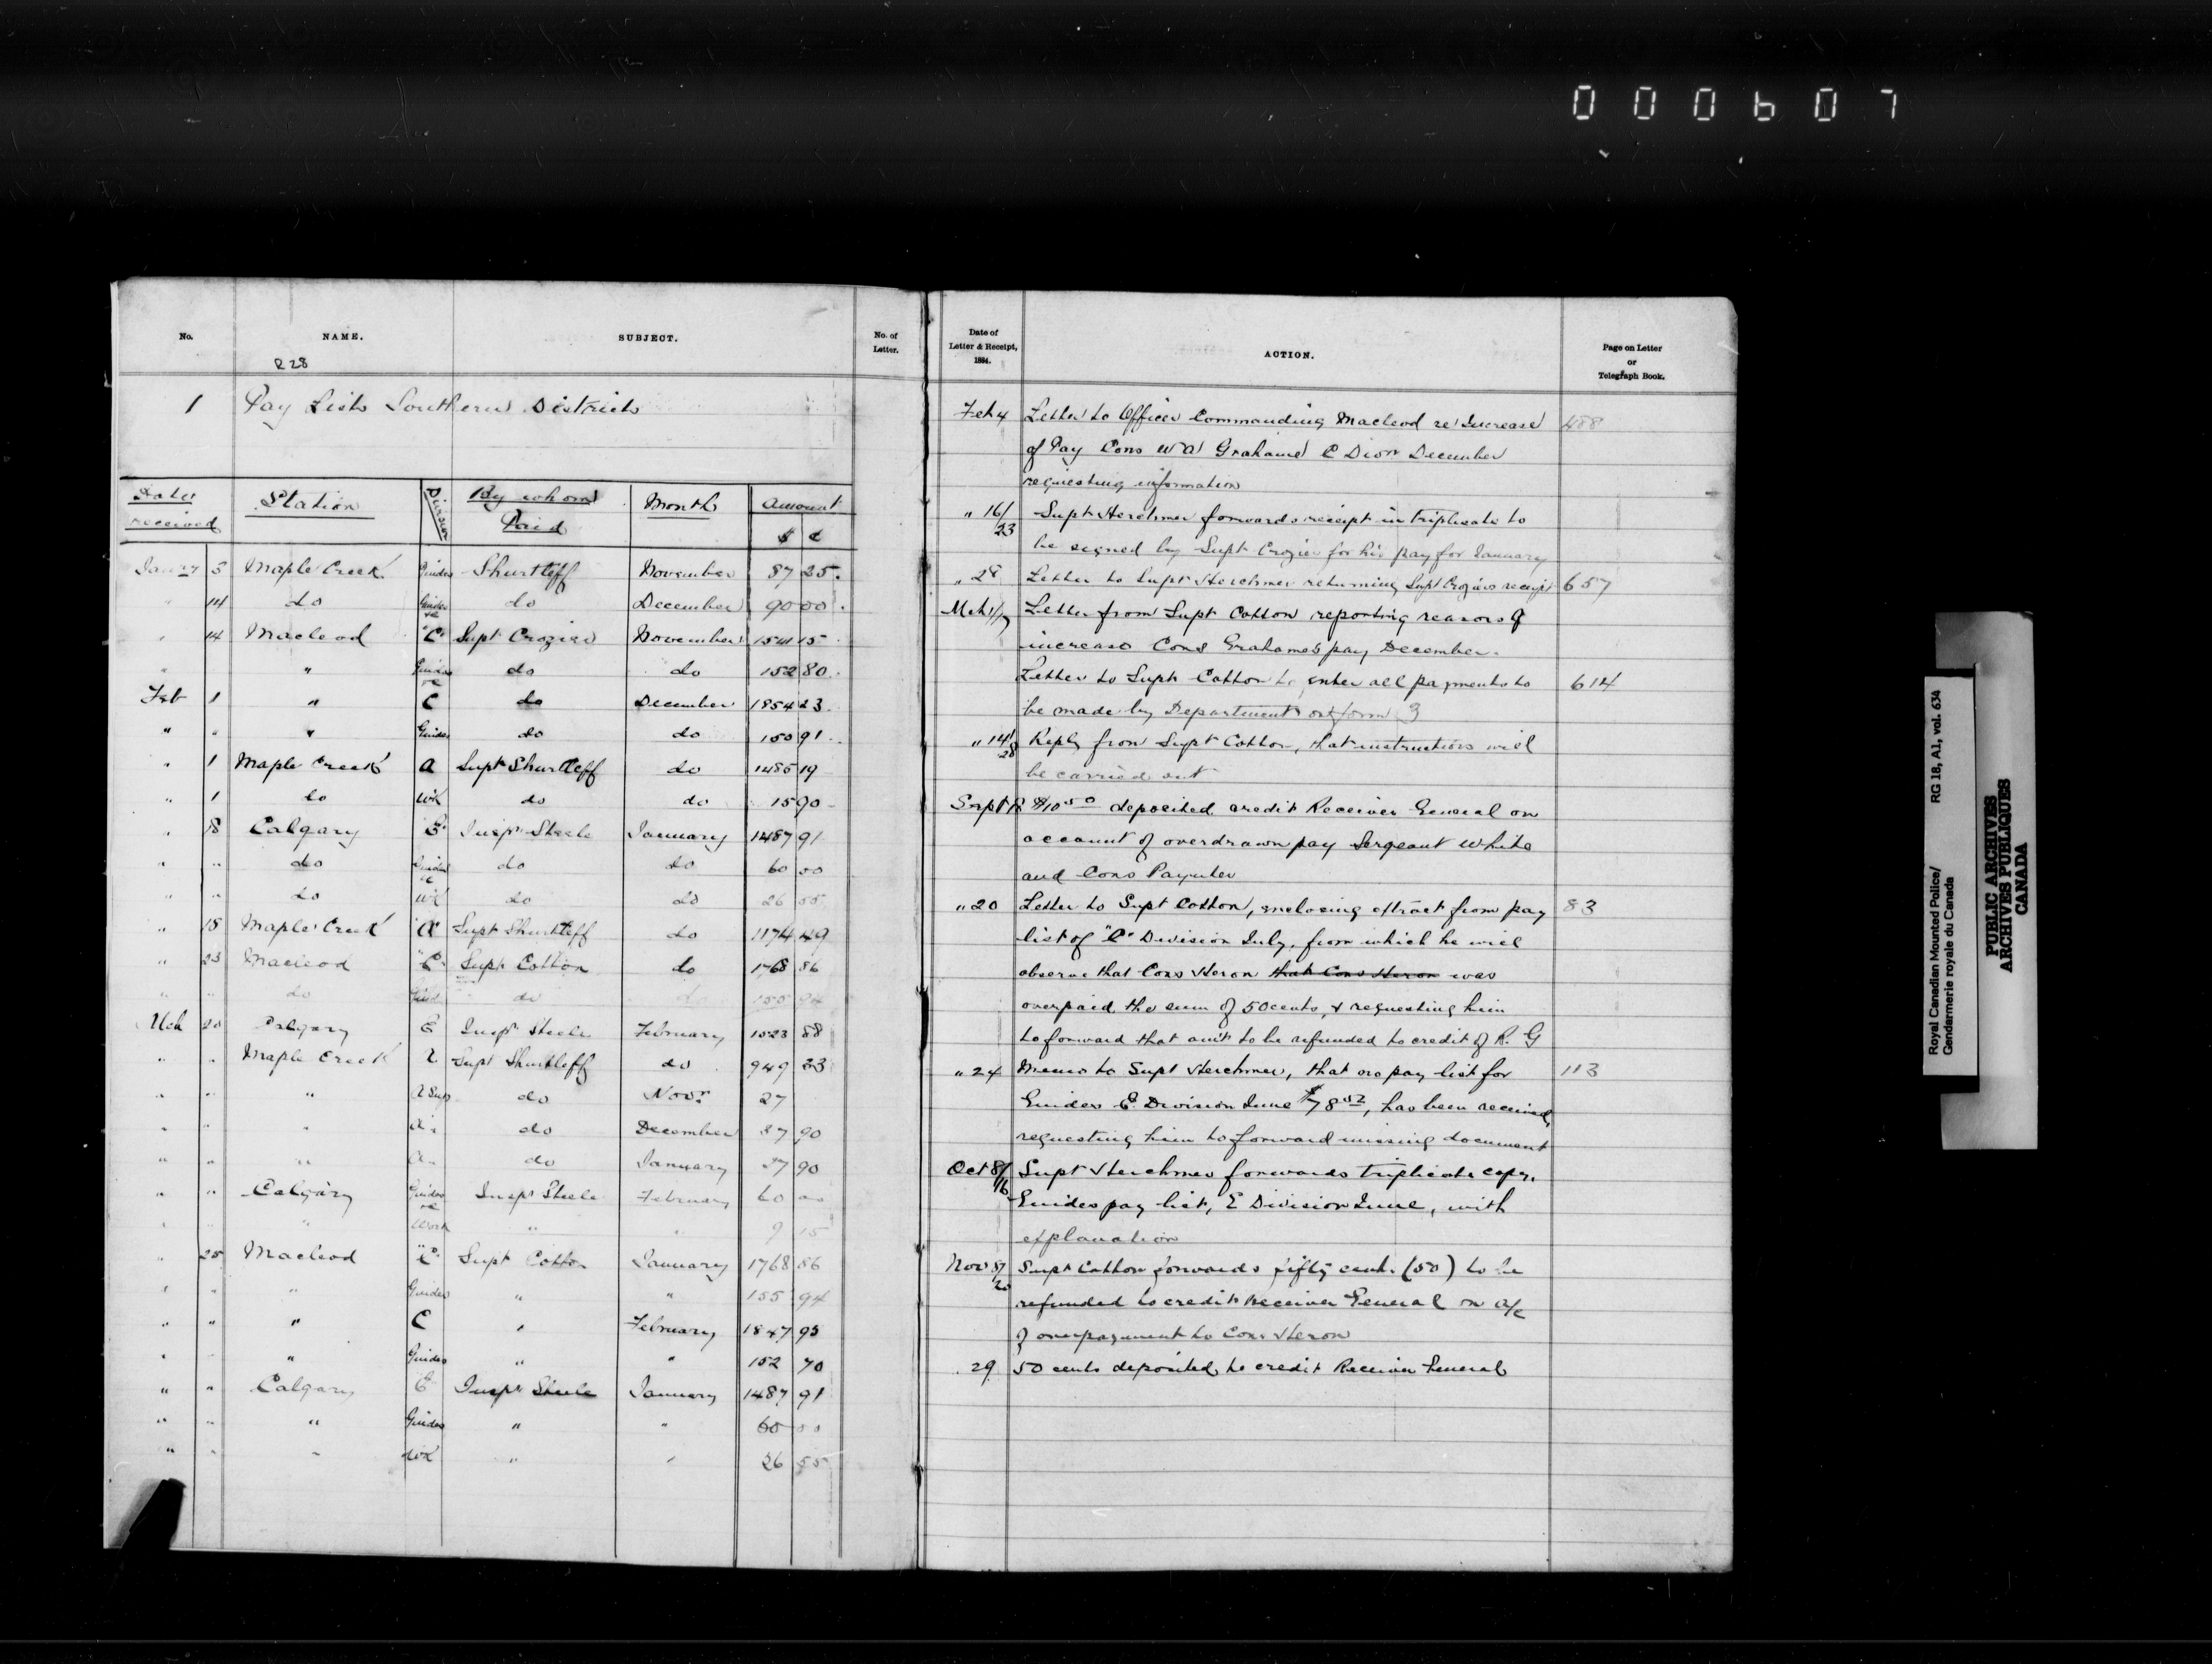 000607
No.
NAME.
SUBJECT.
No. of
Letter.
R 28
1 Pay Lists Southern Districts
Dates received | Station | Division | By whom Paid | Month | Amount $ ¢
Jany 3 Maple Creek Guides Shurtleff November 87 25
" 14 do Guides &c do December 90 00
" 14 Macleod "C" Supt Crozier November 1541 15
" " Guides &c do do 152 80
Feb 1 " C do December 1854 23
" " " Guides do do 150 91
" 1 Maple Creek A Supt Shurtleff do 1485 19
" 1 do WK do do 15 90
" 18 Calgary "E" Inspr Steele January 1487 91
" " do Guides &c do do 60 00
" " do WK do do 26 55
" 18 Maple Creek "A" Supt Shurtleff do 1174 49
" 23 Macleod "C" Supt Cotton do 1768 86
" " do Guid do do 155 94
Mch 20 Calgary E Inspr Steele February 1523 88
" " Maple Creek Supt Shurtleff do 949 23
" " " A Sup do Novr 27
" " " A " do December 27 90
" " " A " do January 27 90
" " Calgary Guides &c Inspr Steele February 60 00
" " " Work " " 9 15
" 25 Macleod "C" Supt Cotton January 1768 86
" " " Guides " " 155 94
" " " C " February 1847 95
" " " Guides " " 152 70
" " Calgary E Inspr Steele January 1487 91
" " " Guides " " 60 00
" " " WK " " 26 55
Date of
Letter & Receipt,
1884.
ACTION.
Page on Letter
or
Telegraph Book.
Feb 4 Letter to Officer Commanding Macleod re Increase 488
of Pay Cons W A Grahame C Dion December
requesting information
" 16/23 Supt Herchmer forwards receipt in triplicate to
be signed by Supt Crozier for his pay for January
" 28 Letter to Supt Herchmer returning Supt Croziers receipt 657
Mch 1/ Letter from Supt Cotton reporting reasons of
increase Cons Grahames pay December.
Letter to Supt Cotton to enter all payments to 614
be made by Department on form 3
" 14/28 Reply from Supt Cotton, that instructions will
be carried out
Sept $10 50 deposited credit Receiver General on
account of overdrawn pay Sergeant White
and Cons Paynter
" 20 Letter to Supt Cotton, enclosing extract from pay 83
list of "C" Division July, from which he will
observe that Cons Heron that Cons Heron was
overpaid the sum of 50 cents, & requesting him
to forward that amt to be refunded to credit of R. G
" 24 Memo to Supt Herchmer, that no pay list for 113
Guides E Division June $78 52, has been received,
requesting him to forward missing document
Oct 8/16 Supt Herchmer forwards triplicate copy,
Guides pay list, E Division June, with
explanation
Nov 5/20 Supt Cotton forwards fifty cents (50) to be
refunded to credit Receiver General on a/c
of overpayment to Cons Heron
29 50 cents deposited to credit Receiver General
Royal Canadian Mounted Police/
Gendarmerie royale du Canada
RG 18, A1, vol. 634
PUBLIC ARCHIVES
ARCHIVES PUBLIQUES
CANADA